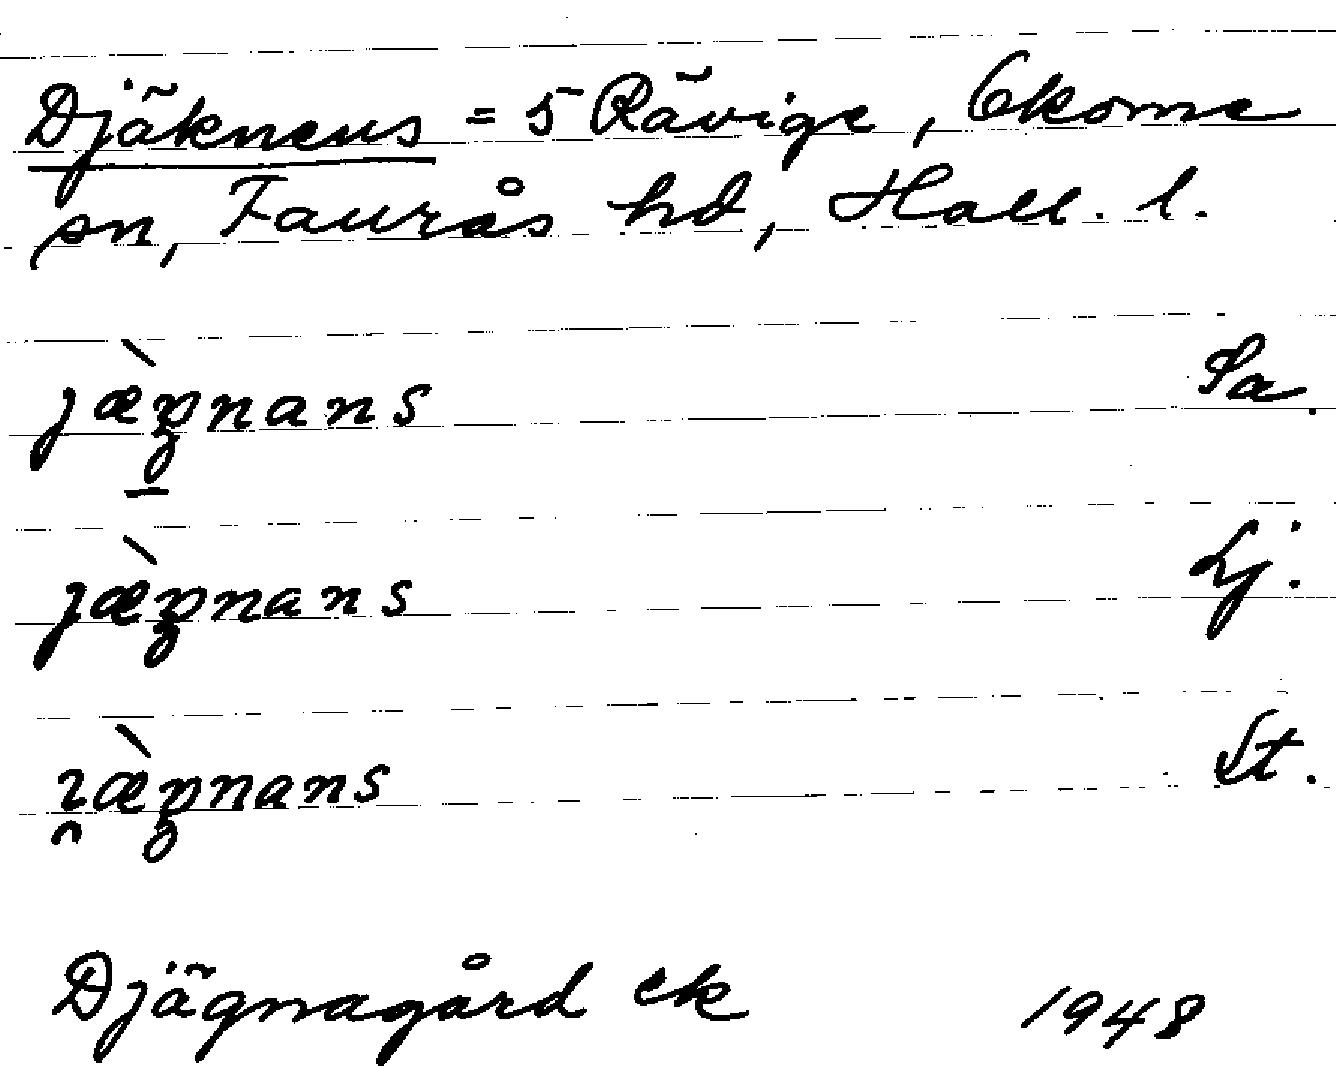 Djäknens = 5 Rävige, Ekome
sn, Faurås hd, Hall. l.
jæ̀gnans Sa.
jæ̀gnans Lj.
ɿæ̀gnans St.
Djägnagård ek 1948